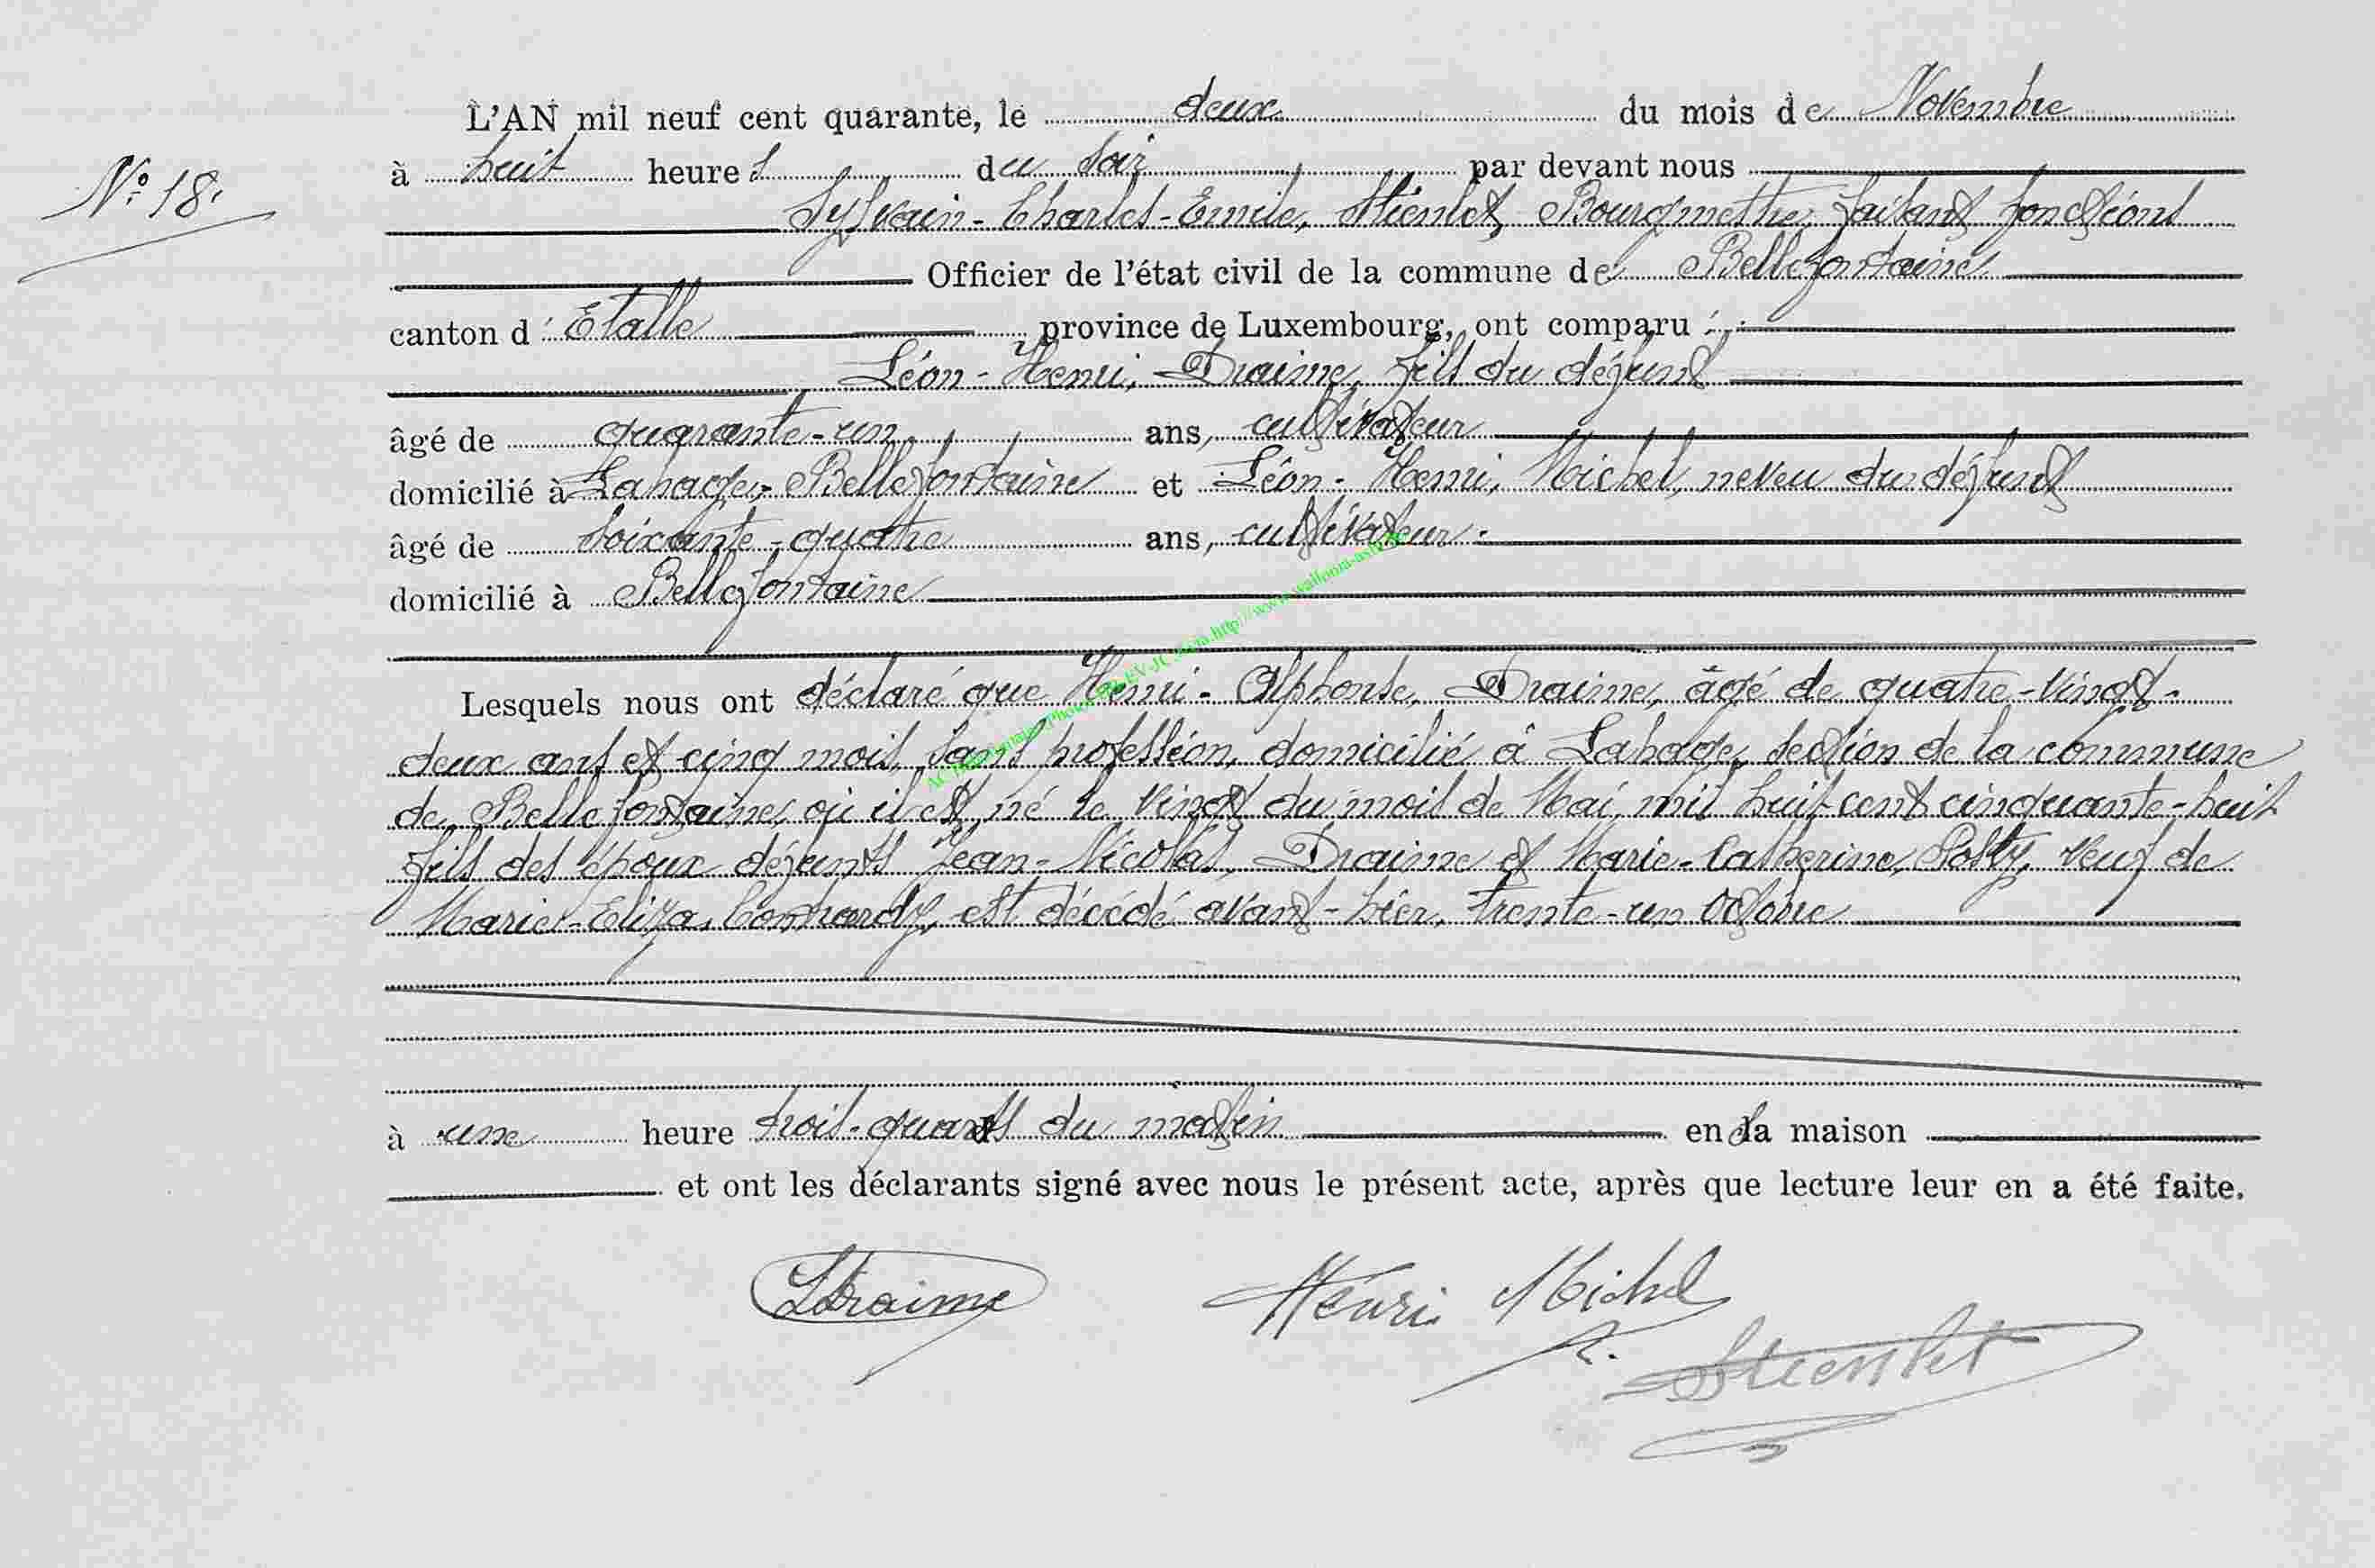 L'AN mil neuf cent quarante, le deux du mois de Novembre
N° 18.
à huit heures du soir par devant nous
Sylvain-Charles-Emile, Stienlet, Bourgmestre, faisant fonctions
Officier de l'état civil de la commune de Bellefontaine
canton d'Etalle province de Luxembourg, ont comparu :
Léon-Henri, Draime, fils du défunt
âgé de quarante-un ans, cultivateur
domicilié à Lahage-Bellefontaine et Léon-Henri, Michel, neveu du défunt
âgé de soixante-quatre ans, cultivateur.
domicilié à Bellefontaine
Lesquels nous ont déclaré que Henri-Alphonse, Draime, âgé de quatre-vingt-
deux ans et cinq mois, sans profession, domicilié à Lahage, section de la commune
de Bellefontaine, où il est né le vingt du mois de Mai, mil huit cent cinquante-huit
fils des époux défunts Jean-Nicolas, Draime et Marie-Catherine, veuf de
Marie-Eliza, est décédé avant-hier, trente-un Octobre
à une heure trois-quarts du matin en sa maison
et ont les déclarants signé avec nous le présent acte, après que lecture leur en a été faite.
LDraime Henri Michel
Stienlet